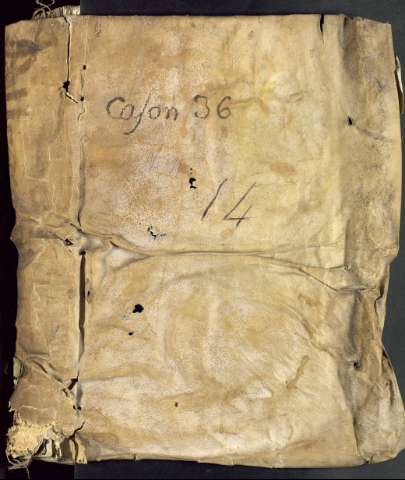 Caſon 36
14